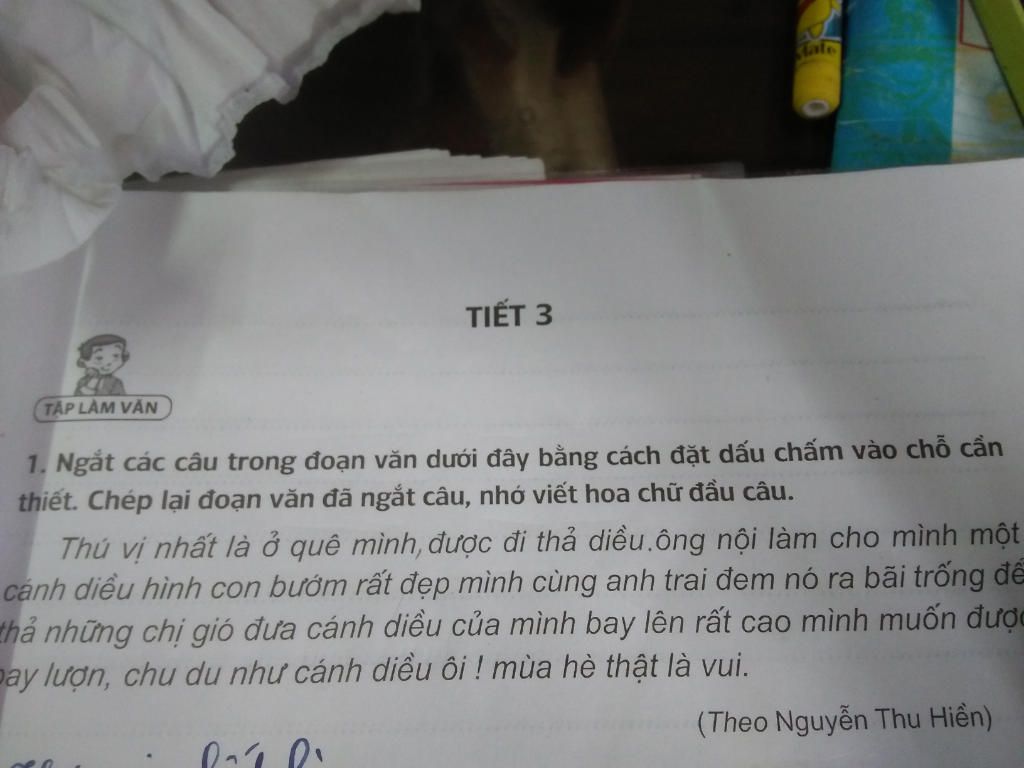 Mate
TIẾT 3
TẬP LÀM VĂN
1. Ngắt các câu trong đoạn văn dưới đây bằng cách đặt dấu chấm vào chỗ cần
thiết. Chép lại đoạn văn đã ngắt câu, nhớ viết hoa chữ đầu câu.
Thú vị nhất là ở quê mình, được đi thả diều.ông nội làm cho mình một
cánh diều hình con bướm rất đẹp mình cùng anh trai đem nó ra bãi trống để
thả những chị gió đưa cánh diều của mình bay lên rất cao mình muốn được
bay lượn, chu du như cánh diều ôi ! mùa hè thật là vui.
(Theo Nguyễn Thu Hiền)